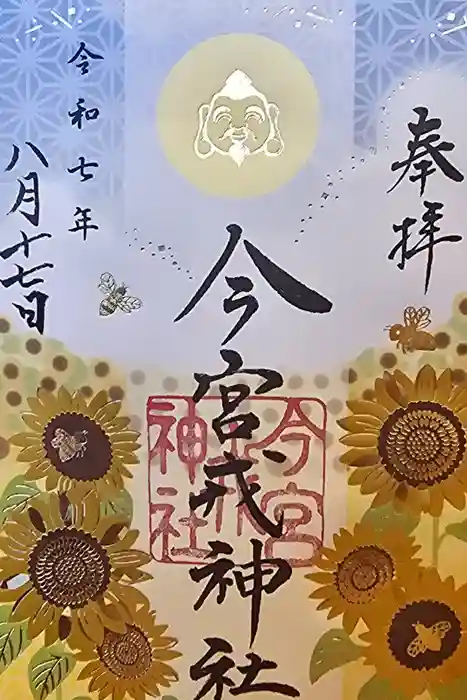 奉拝
今宮戎神社
今宮
戎
神社
令和七年
八月十七日